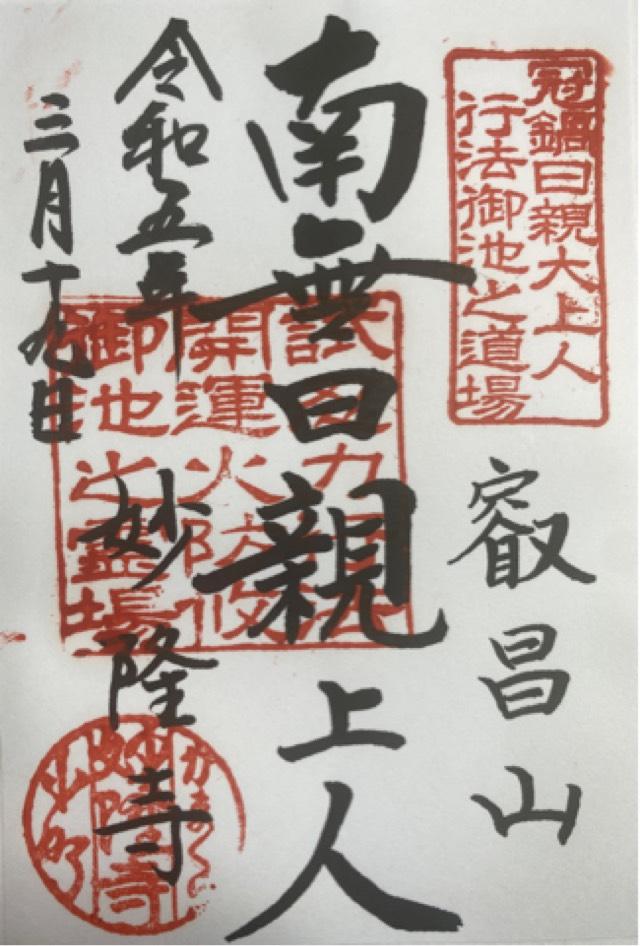 冠鍋日親大上人
行法御池之道場
叡昌山
南無日親上人
令和五年
三月十九日
妙隆寺
開運火防
御池之霊場
かまくら
妙隆寺
小町